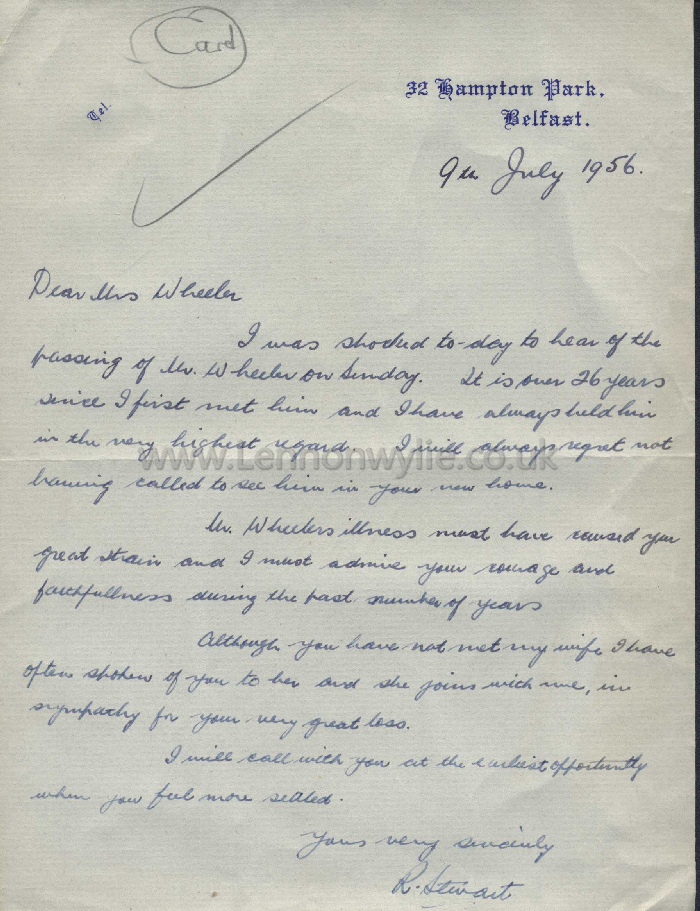 Card
32 Hampton Park,
Belfast.
Tel.
9th July 1956.
Dear Mrs Wheeler
I was shocked to-day to hear of the
passing of Mr. Wheeler on Sunday. It is over 26 years
since I first met him and I have always held him
in the very highest regard. I will always regret not
www.Lennonwylie.co.uk
having called to see him in your new home.
Mr. Wheelers illness must have caused you
great strain and I must admire your courage and
faithfullness during the past number of years
Although you have not met my wife I have
often spoken of you to her and she joins with me, in
sympathy for your very great loss.
I will call with you at the earliest opportunity
when you feel more settled.
Yours very sincerely
R. Stewart